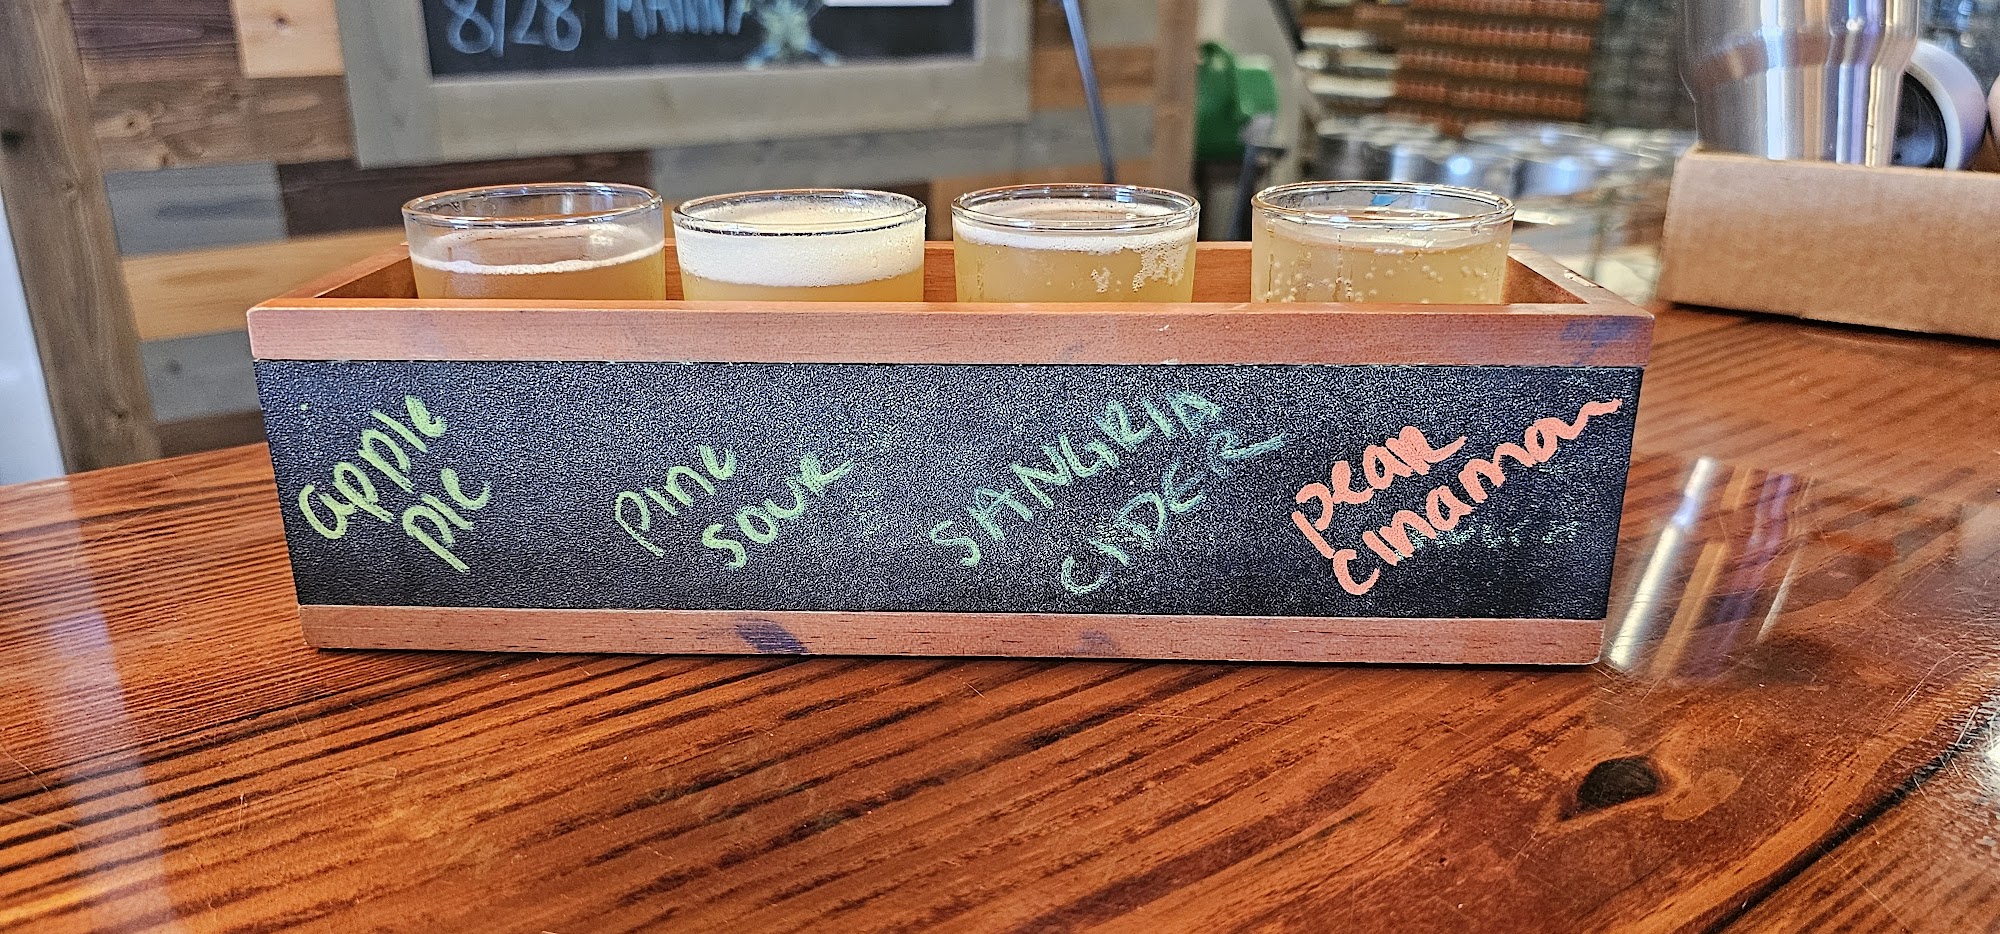 8/28 MANNA
apple
pie
pine
sour
SANGRIA
CIDER
pear
cinamon